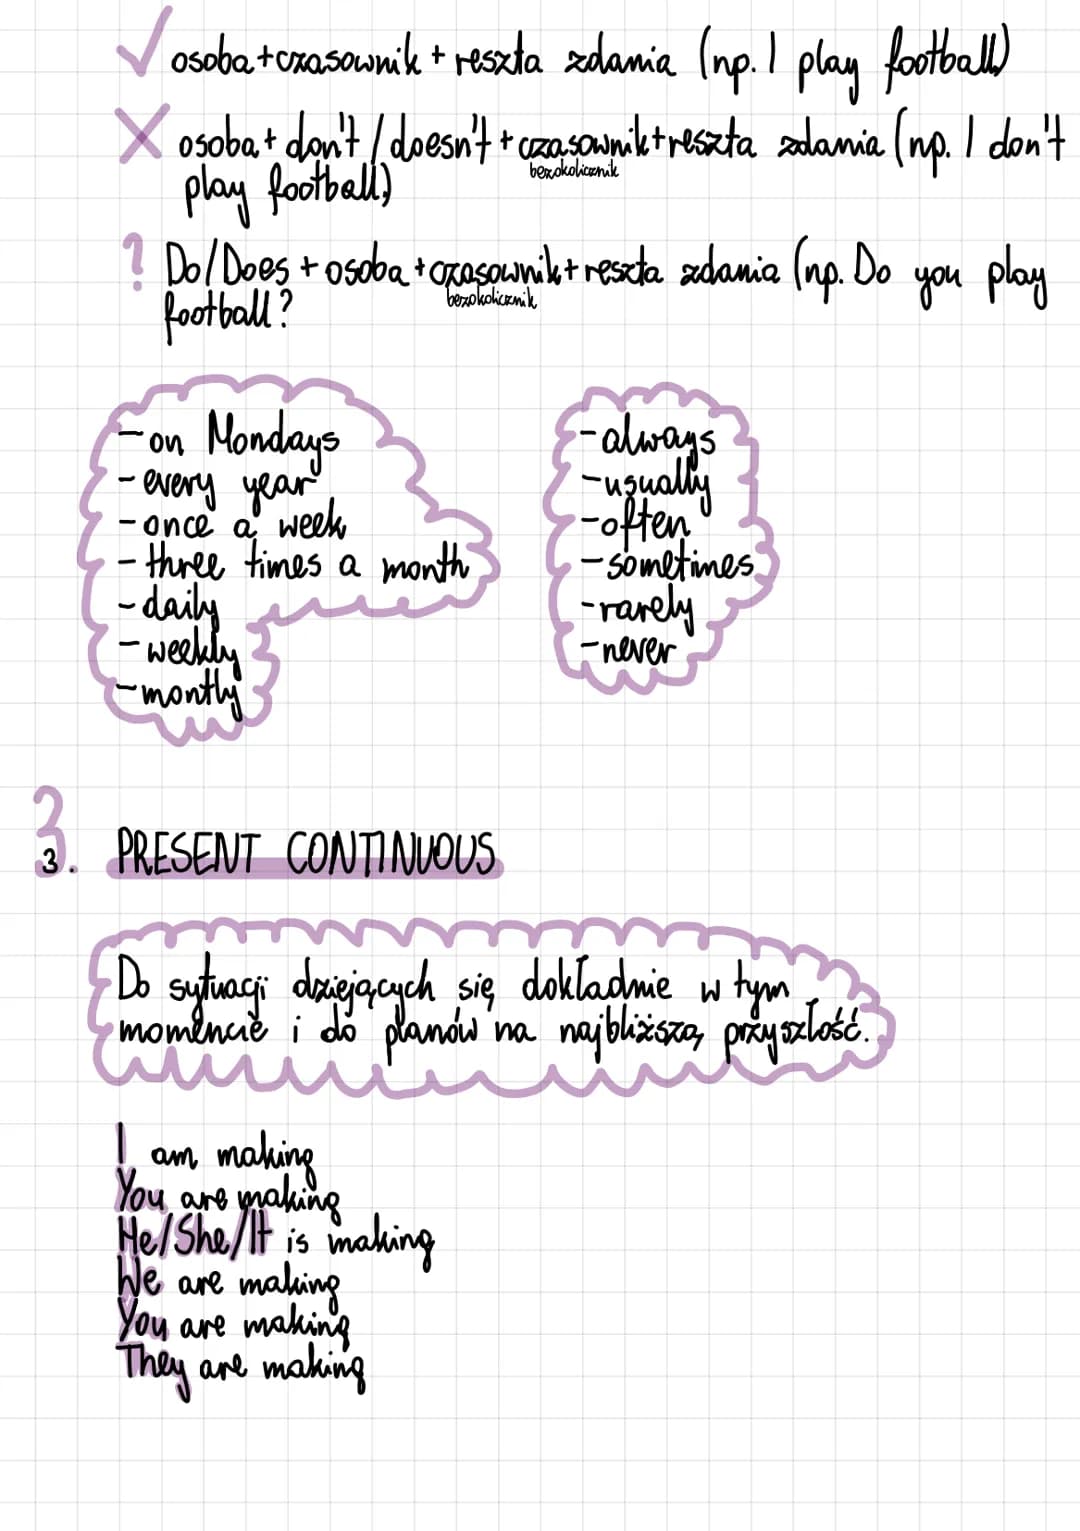 ✓ osoba+czasownik + reszta zdania (np. I play football)
X osoba + don't / doesn't + czasownik+reszta zdania (np. I don't
bezokolicznik
play football)
? Do/Does + osoba + czasownik+reszta zdania (np. Do you play
bezokolicznik
football?
- on Mondays
- every year
- once a week
- three times a month
- daily
- weekly
- montly
- always
- usually
- often
- sometimes
- rarely
- never
3.
3. PRESENT CONTINUOUS
Do sytuacji dziejących się dokładnie w tym
momencie i do planów na najbliższą przyszłość.
I am making
You are making
He/She/It is making
We are making
You are making
They are making